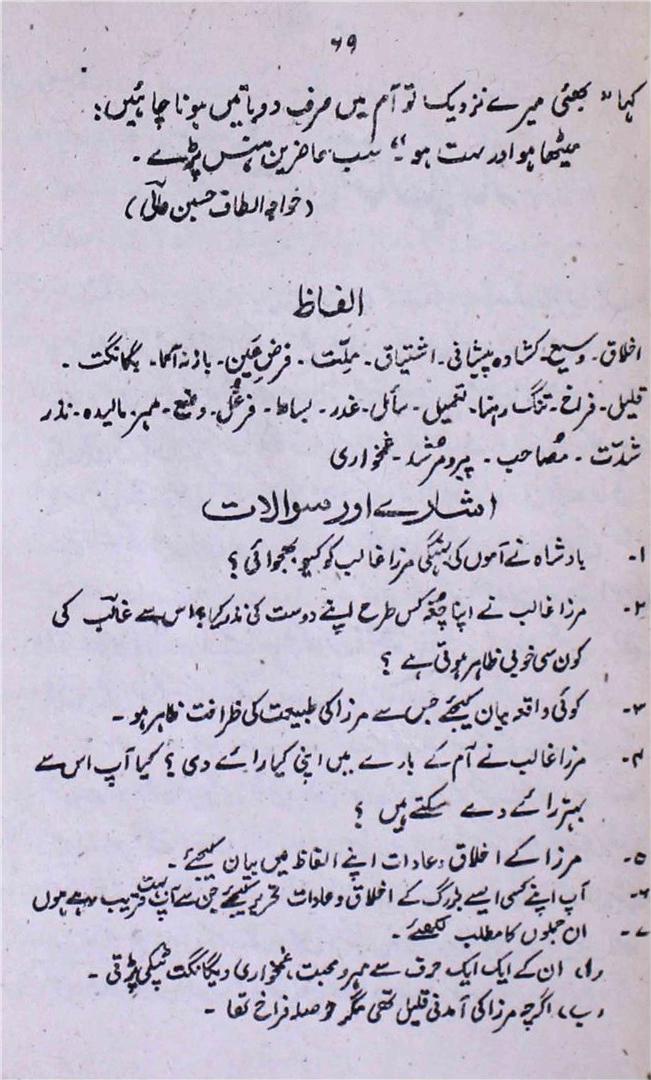 ۶۹
کہا "بھئی میرے نزدیک تو آم میں صرف دو باتیں ہونا چاہئیں؛
میٹھا ہو اور بہت ہو"۔ سب حاضرین ہنس پڑے۔
(خواجہ الطاف حسین حالیؔ)
الفاظ
اخلاق۔ وسیع۔ کشادہ پیشانی۔ اشتیاق۔ ملّت۔ فرض عین۔ یگانگت۔
قلیل۔ فراخ۔ تنگ رہنا۔ تعمیل۔ سائل۔ غدر۔ بساط۔ فرغُل۔ وضع۔ ممبر۔ مالیدہ۔ نذر
شدّت۔ مُصاحب۔ پیر و مُرشد۔ غمخواری
اشارے اور سوالات
۱۔ بادشاہ نے آموں کی بہنگی مرزا غالب کو کیوں بھجوائی؟
۲۔ مرزا غالب نے اپنا چُغہ کس طرح اپنے دوست کی نذر کیا؟ اس سے غالبؔ کی
کون سی خوبی ظاہر ہوتی ہے؟
۳۔ کوئی واقعہ بیان کیجئے جس سے مرزا کی طبیعت کی ظرافت ظاہر ہو۔
۴۔ مرزا غالب نے آم کے بارے میں اپنی کیا رائے دی؟ کیا آپ اس سے
بہتر رائے دے سکتے ہیں؟
۵۔ مرزا کے اخلاق و عادات اپنے الفاظ میں بیان کیجئے۔
۶۔ آپ اپنے کسی ایسے بزرگ کے اخلاق و عادات تحریر کیجئے جن سے آپ بہت قریب رہے ہوں
۷۔ ان جملوں کا مطلب لکھئے۔
(ا) ان کے ایک ایک حرف سے مہر و محبت، غمخواری و یگانگت ٹپکی پڑتی۔
(ب) اگرچہ مرزا کی آمدنی قلیل تھی مگر حوصلہ فراخ تھا۔